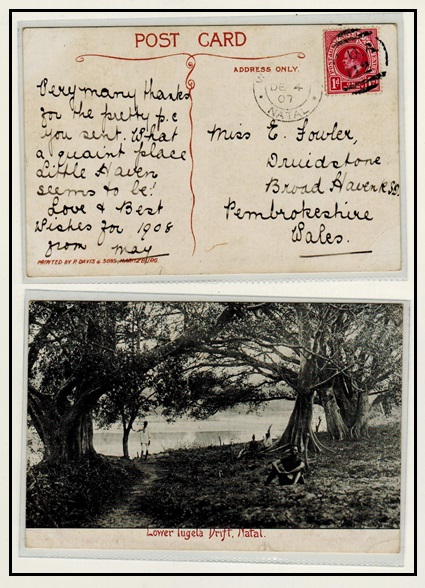 POST CARD
ADDRESS ONLY.
DE 4
07
NATAL
1d
Very many thanks
for the pretty p.c
you sent. What
a quaint place
Little Haven
seems to be!
Love & Best
Wishes for 1908
from May
Miss E. Fowler,
Druidstone
Broad Haven R.S.O.
Pembrokeshire
Wales.
PRINTED BY P. DAVIS & SONS,
Lower Tugela Drift, Natal.